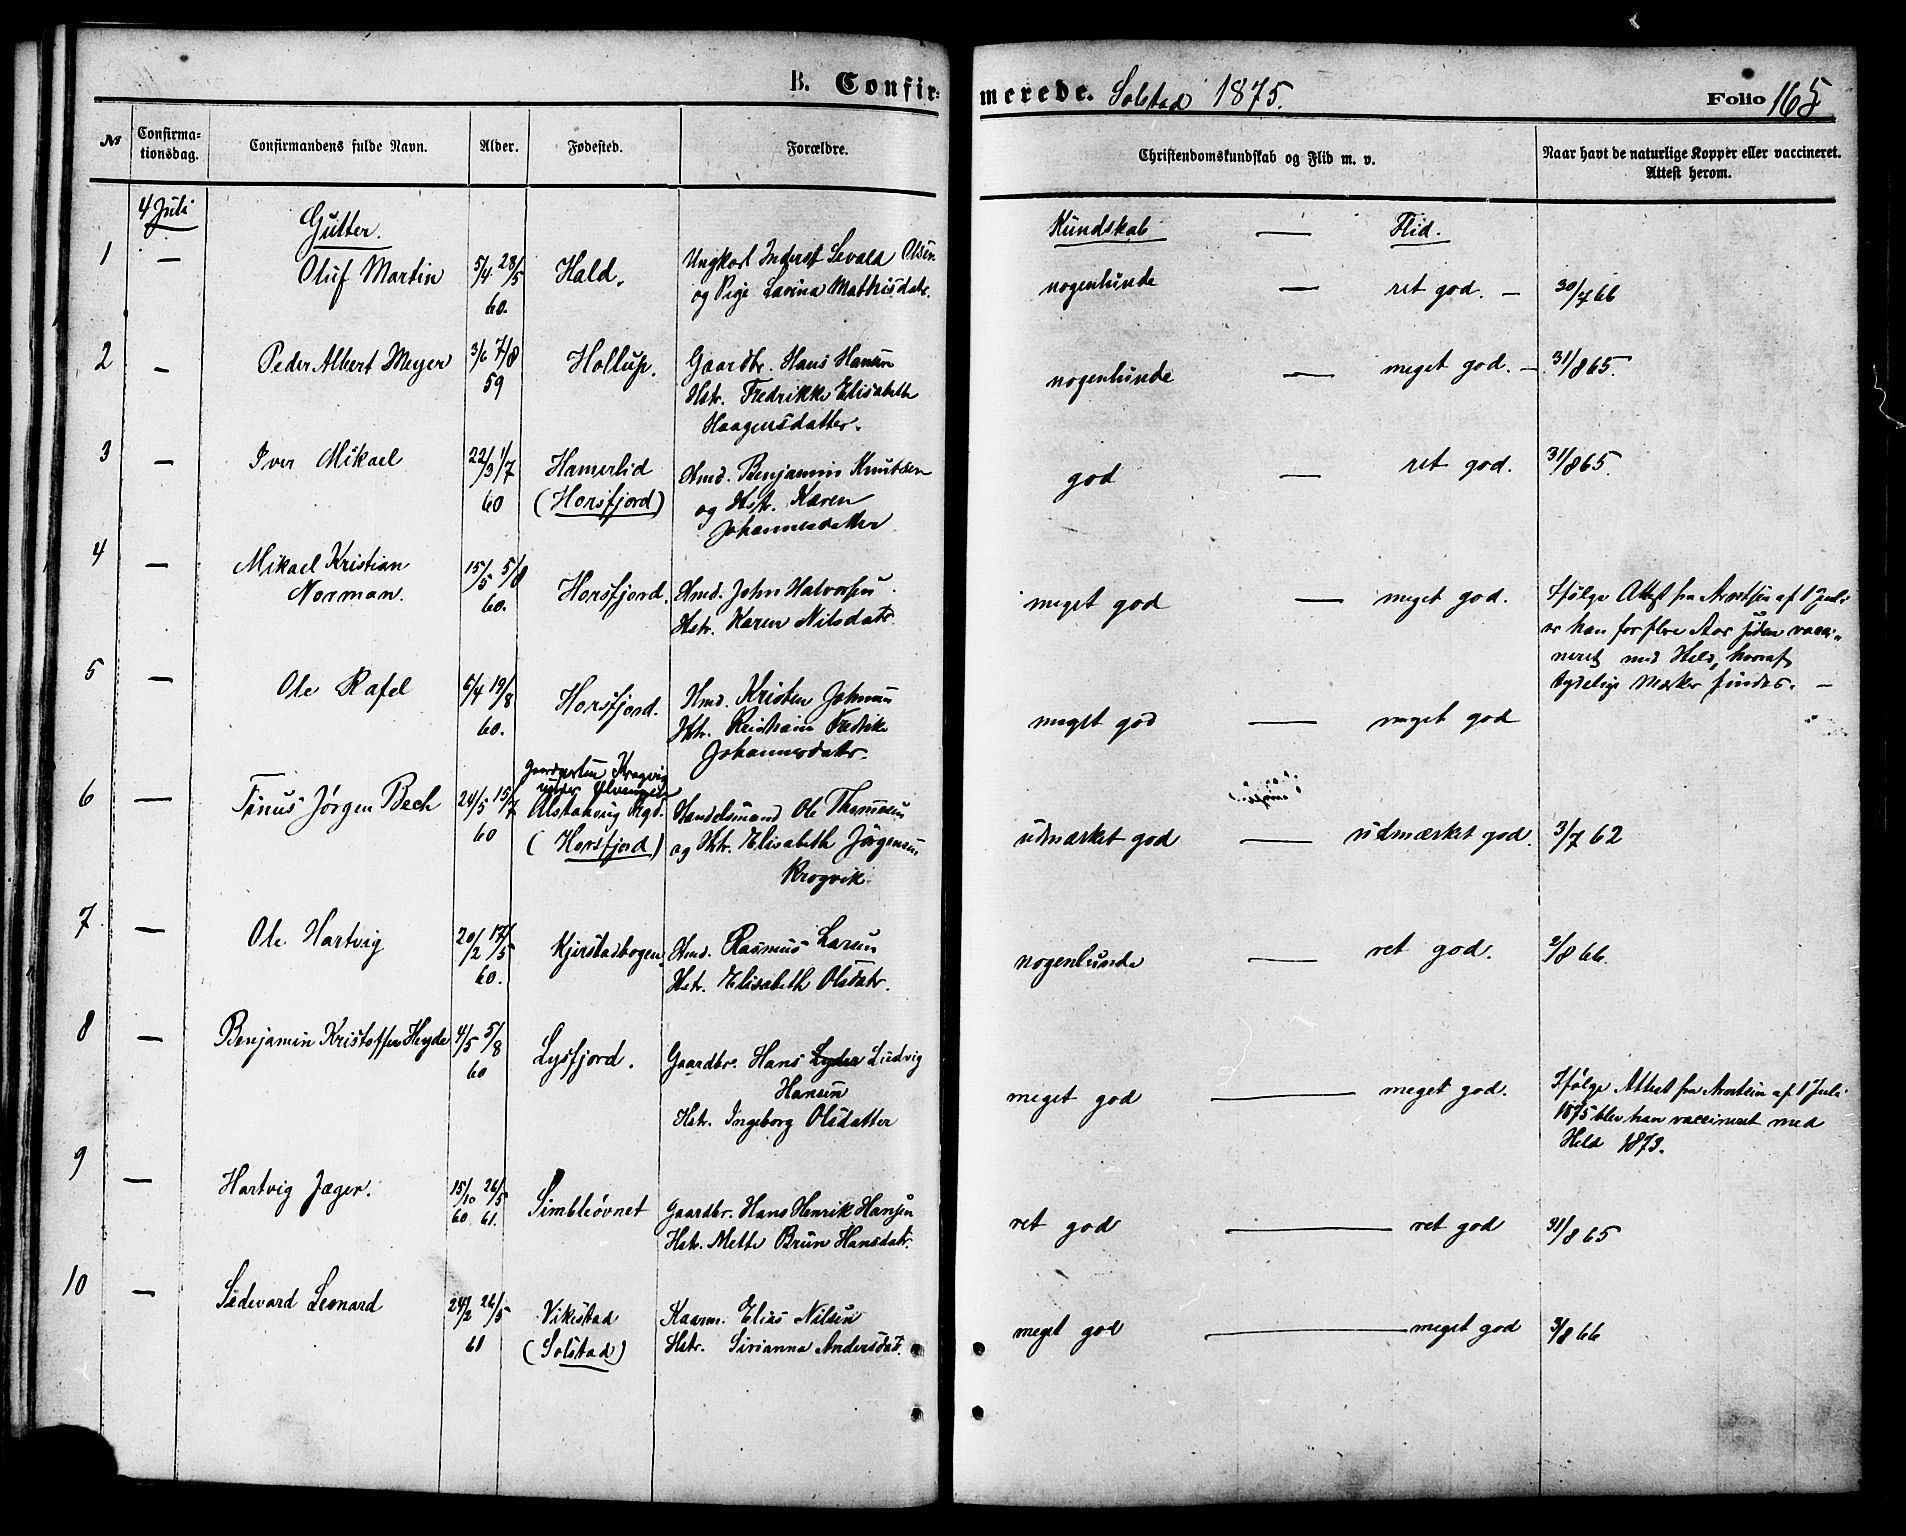 B. Confirmerede. Solstad 1875. Folio 165
№ Confirmationsdag. Confirmandens fulde Navn. Alder. Fødested. Forældre. Christendomskundskab og Flid m. v. Naar havt de naturlige Kopper eller vaccineret. Attest herom.
4 Juli Gutter. Kundskab — Flid.
1 — Oluf Martin 5/4 28/5 60. Hald. Ungkarl Inderst Sevald Olsen
og Pige Lavina Mathisdatr. nogenlunde — ret god. — 30/7 66
2 — Peder Albert Meyer 3/6 7/8 59 Hollup. Gaardbr. Hans Hansen
Hstr. Fredrikke Elisabeth
Haagensdatter. nogenlunde — meget god. — 31/8 65.
3 — Iver Mikael 22/3 1/7 60 Hamerlid
(Horsfjord) Hmd. Benjamin Knutsen
og Hstr. Karen
Johannesdatter god — ret god. 31/8 65.
4 — Mikael Kristian
Norman. 15/5 5/8 60. Horsfjord. Hmd. John Halvorsen
Hstr. Karen Nilsdatr. meget god — meget god. Ifølge Attest fra af 1 Juli
er han for flere Aar siden vacci-
neret med Held, hvoraf
tydelige Mærker findes. —
5 — Ole Rafel 6/4 19/8 60. Horsfjord. Hmd. Kristen Johnsen
Hstr. Kristiane Fredrike
Johannesdatr. meget god — meget god
6 — Tinus Jørgen Bech 24/5 15/7 60 Krogvig
under
Alstahaug Prgd.
(Horsfjord) Handelsmand Ole Thomsen
og Hstr. Elisabeth Jørgensen
Krogvik. udmærket god — udmærket god. 3/7 62
7 — Ole Hartvig 20/2 17/5 60. Kjerstadbogen. Hmd. Rasmus Larsen
Hstr. Elisabeth Olsdatr. nogenlunde — ret god. 2/8 66.
8 — Benjamin Kristoffer Heyde 4/5 5/8 60 Lysfjord. Gaardbr. Hans Ludvig
Hansen
Hstr. Ingeborg Olsdatter meget god — meget god. Ifølge Attest fra af 1 Juli
1875 blev han vaccineret med
Held 1873.
9 — Hartvig Jæger. 15/10 60 26/5 61. Simbleøvnet Gaardbr. Hans Henrik Hansen
Hstr. Mette Brun Hansdatr. ret god — ret god 31/8 65
10 — Sedevard Leonard 24/2 26/5 61 Vikestad
(Solstad) Kaarm. Elias Nilsen
Hstr. Sirianna Andersdat. meget god — meget god 3/8 66